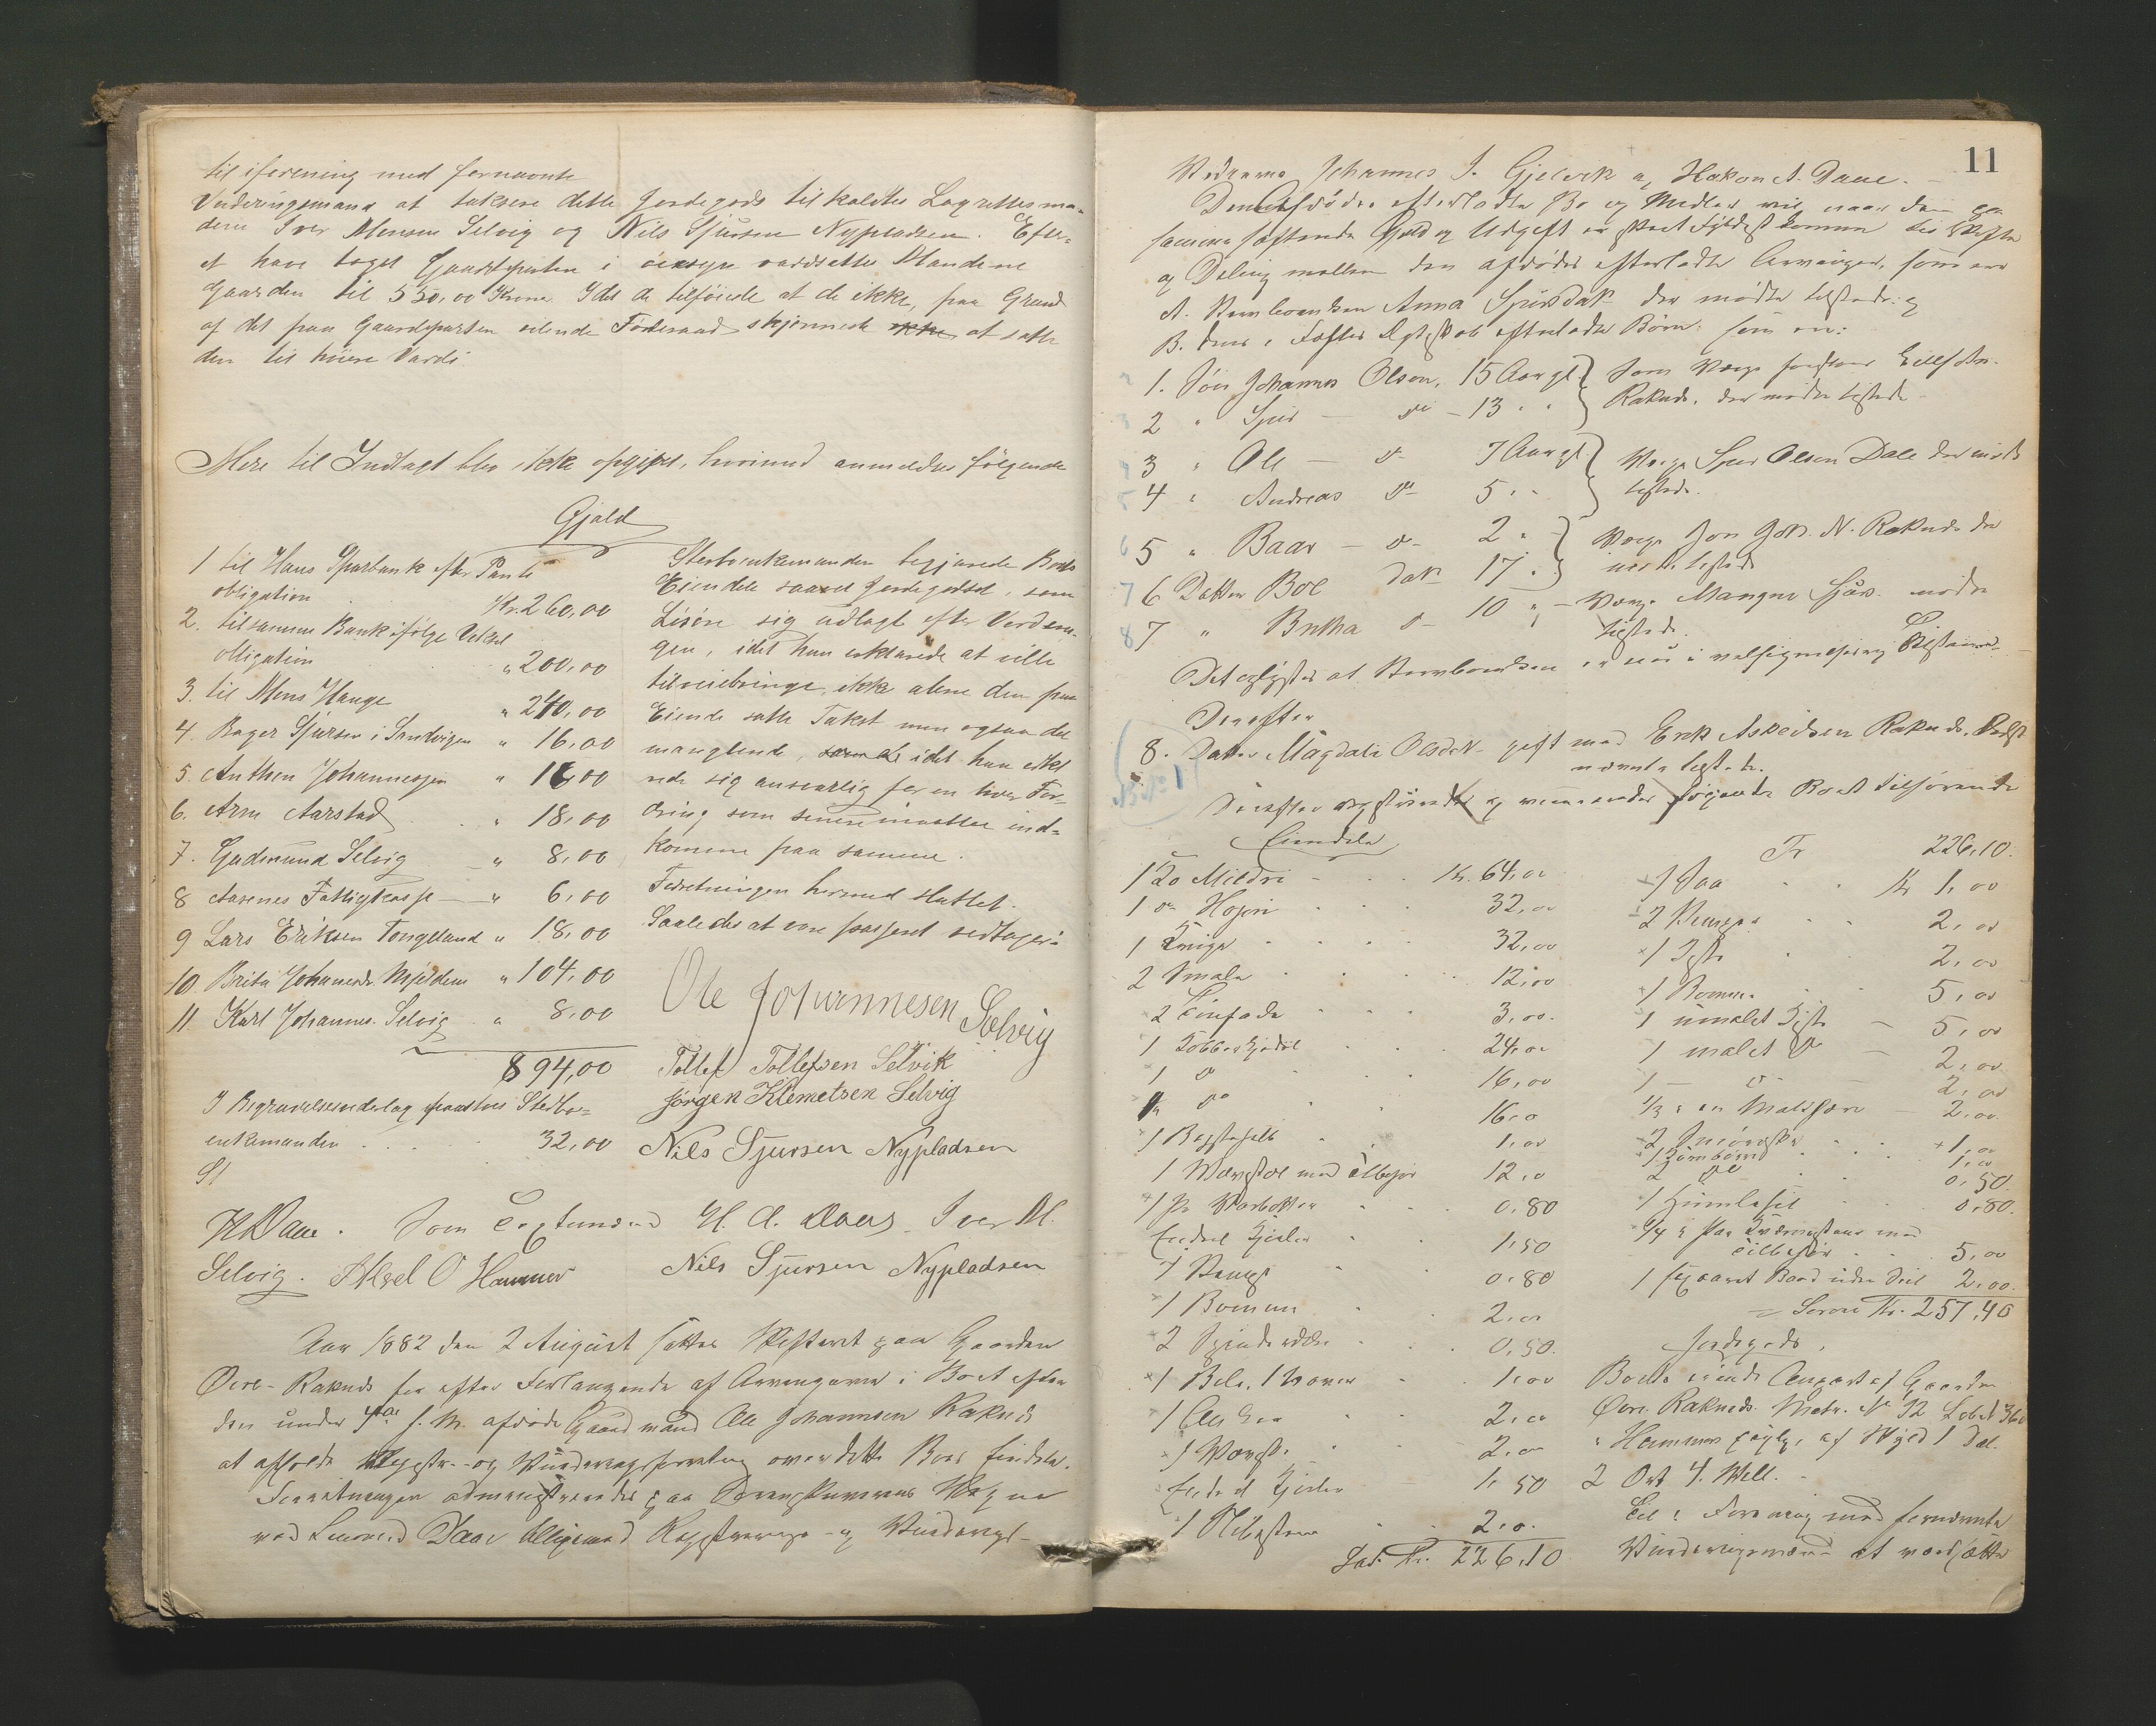 til iforening med fornævnte
Vurderingsmænd at taksere dette Jordegods tilkaldtes Lagrettesmæn-
dene Iver Monsen Selvig og Nils Sjursen Nypladsen. Efter
at have taget Gaardparten i øiesyn værdsatte Mændene
Gaarden til 550,00 Kroner Idet de tilføiede at de ikke, paa Grund
af det paa Gaardsparten hvilende Føderaad skjønnede at sætte
den til høiere Værdi.
Mere til Indtægt blev ikke opgivet, hvorimod anmeldtes følgende
Gjæld
1 til Haus Sparbank efter Pante
obligation Kr. 260,00
2. til samme Bank ifølge Veksel
obligation " 200,00
3. til Mons Hauge " 240,00
4. Roger Sjursen i Sandvigen " 16,00
5. Anthon Johannessen " 16,00
6. Arne Aarstad " 18,00
7. Gudmund Selvig " 8,00
8 Aasenes Fattigkasse " 6,00
9 Lars Eriksen Tongeland " 18,00
10. Brita Johannesdr. Mjeldem " 104,00
11 Karl Johannes. Selvig " 8,00
894,00
I Begravelsesudlæg paastoes Sterbo-
enkemanden 32,00
Sterboenkemanden begjærede Boets
Eiendele saavel Jordegodset, som
Løsøre sig udlagt efter Vurderin-
gen, idet han erklærede at ville
tilveiebringe, ikke alene den paa
Eiende satte Takst men ogsaa det
manglende, idet han erklæ
rede sig ansvarlig for en hver For-
dring som senere maatte ind-
komme paa samme.
Forretningen hermed sluttet.
Saaledes at være passeret vedtages:
Ole Johannesen Selvig
Tollef Tollefsen Selvik
Jørgen Klemetsen Selvig
Nils Sjursen Nypladsen
H Daae. Som H. A. Daae Iver M.
Selvig. Aksel O Hammer Nils Sjursen Nypladsen
Aar 1882 den 2 August sattes Skifteret paa Gaarden
Øvre-Raknes for efter Forlangende af Arvingerne i Boet efter
den under 4de f. M. afdøde Gaardmand Ole Johannesen Raknes
at afholde Registr.- og Vurderingsforretning over dette Boes Eiendele.
Forretningen administreredes paa Sorenskriverens Vegne
ved Lensmand Daae alligemed Registrerings- og Vurderings-
11
Mændene Johannes J. Gjelvik og Hakon A. Daae.
Den Afdødes efterladte Bo og Midler vil naar den paa
samme hæftende Gjeld og Udgift er skeet Fyldest komme til Skifte
og Deling mellem den afdødes efterladte Arvinger, som er
A. Sterboenken Anna Sjursdatr. der mødte tilstede og
B. deres i Fælles Ægteskab efterladte Børn: som er:
1. Søn Johannes Olsen, 15 Aar gl. Som Værge
2 " Sjur — do — 13 " " Raknes, der mødte tilstede
3 " Ole — do 7 Aar gl. Værge Sjur Olsen Dale der mødte
4 " Andreas do 5 " " tilstede.
5 " Baar — do — 2 " Værge Jon Joh. N. Raknes der
6 Datter Boe datr. 17 " mødte tilstede
7 " Britha do — 10 " — Værge Mangnus Sjurs. mødte
tilstede.
Det oplystes at Sterboenken er nu i velsignelsesrig Tilstand.
Derefter
8. Datter Magdali Olsdatr. gift med Erik Askeldsen Raknes.
nævnte tilstede.
Derefter registreredes og vurderedes følgende Boet tilhørende
Eiendele
1 Ko Mildri Kr. 64,00
1 do Hogni 32,00
1 Kvige 32,00
2 Smale 12,00
2 3,00
1 Kobberkjedel 24,00
1 do 16,00
do 16,0
1 1,00
1 Vævstol med tilbehør 12,0
1 Pr 0,80
Endel Kjørler 1,50
7 0,80
1 2,00
2 0,50
1 Bile, 1 1,00
1 2,00
1 2,00
Endel Kjørler 1,50
1 Slibesten 2,0
Lat. Kr. 226,10
Tr 226,10
1 Sag Kr 1,00
2 2,00
1 Kiste 2,00
1 5,00
1 umalet Kiste — 5,00
1 malet do — 2,00
1 — do — 2,00
1/3 i en 2,00
2 1,00
1 1,00
2 do 0,50
1 0,80
1/4 i Par Kværnstene med
tilbehør 5,00
1 Baad uden Seil 2,00
Løsøre Kr. 257,40
Jordegods
Boets eiende Anpart af Gaarden
Øvre Raknes. Matr. No 92 Løb No 36
Hammer af Skyld 1 Dal.
2 Ort 4. Skill.
Til i Forening med fornævnte
Vurderingsmænd at værdsætte